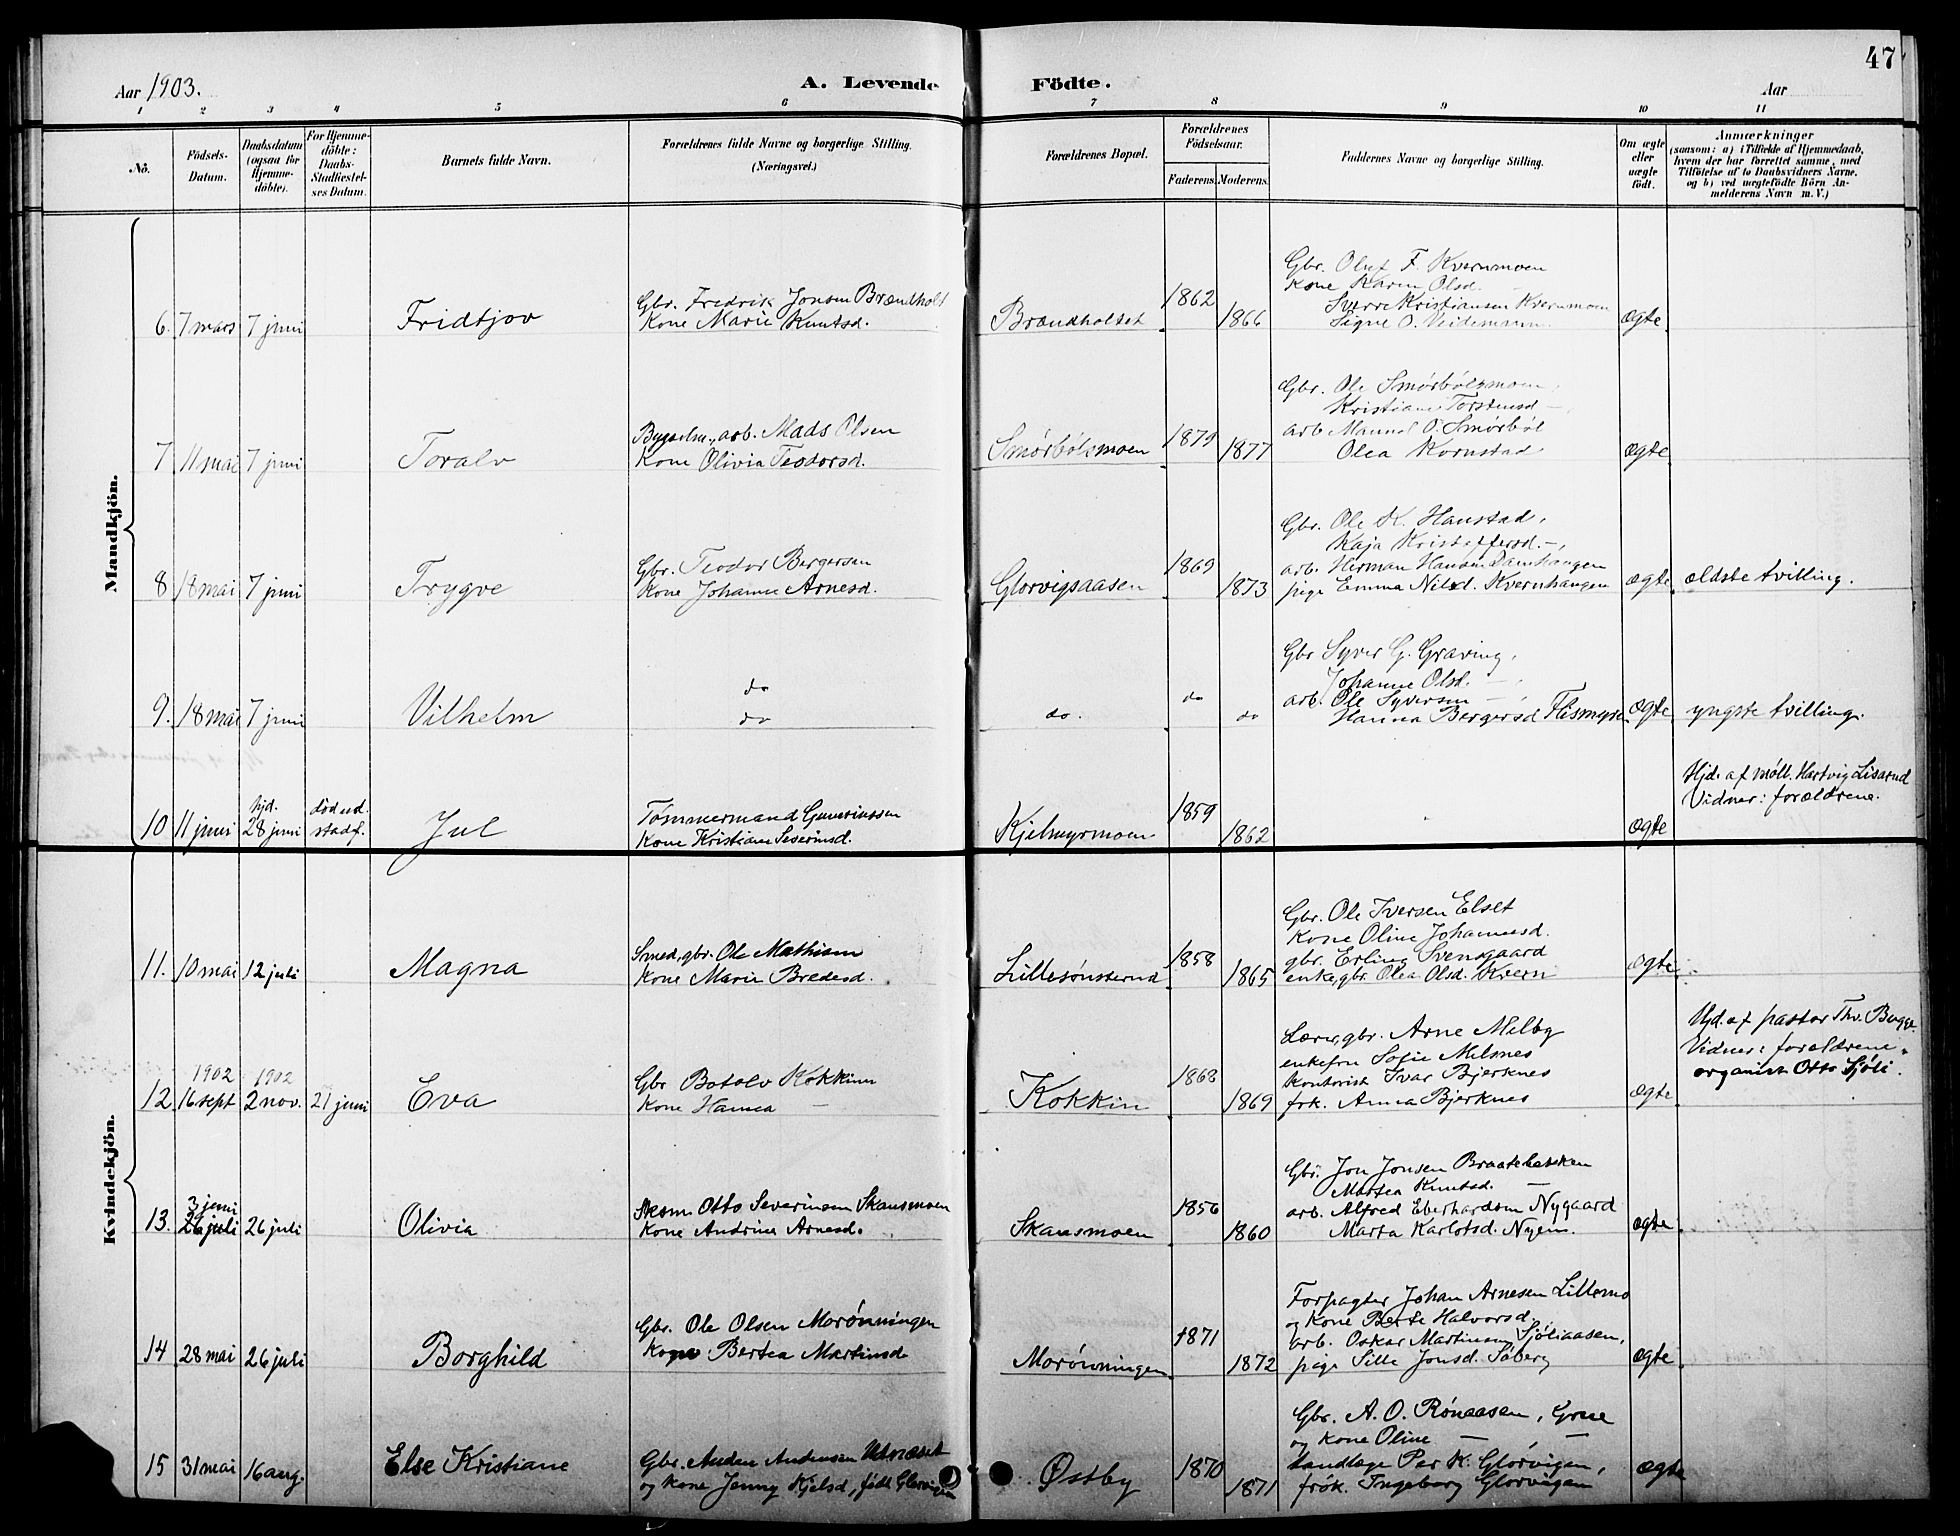 47
Aar 1903.
A. Levende Födte.
Aar
1 2 3 4 5 6 7 8 9 10 11
No.
Födsels-Datum.
Daabsdatum (ogsaa for Hjemme-döbte).
For Hjemme-döbte: Daabs-Stadfæstel-ses Datum.
Barnets fulde Navn.
Forældrenes fulde Navne og borgerlige Stilling.
(Næringsvei.)
Forældrenes Bopæl.
Forældrenes Födselsaar.
Faderens. Moderens.
Faddernes Navne og borgerlige Stilling.
Om ægte eller uægte födt.
Anmærkninger
(saasom: a) i Tilfælde af Hjemmedaab,
hvem der har forrettet samme, med
Tilföielse af to Daabsvidners Navne.
og b) ved uægtefödte Börn An-
melderens Navn m. V.)
Mandkjön.
6. 7 mars 7 juni Fridtjov
Gbr. Fredrik Jonsen Brændholt
Kone Marie Knutsd.
Brændholtet 1862 1866
Gbr. Oluf F. Kvernmoen
Kone Karen Olsd. —
Sverre Kristiansen Kvernmoen
Signe O. Veidemann
ægte
7 11 mai 7 juni Toralv
Bygselm., arb. Mads Olsen
Kone Olivia Teodorsd.
Smørbølsmoen 1879 1877
Gbr. Ole Smørbølsmoen,
Kristiane Torstensd —,
arb. O. Smørbøl
Olea Kornstad
ægte
8 18 mai 7 juni Trygve
Gbr. Teodor Bergersen
Kone Johanne Arnesd.
Glorvigsaasen 1869 1873
Gbr. Ole K. Hanstad,
Kaja Kristoffersd. —,
arb. Herman Hansen Damhaugen
pige Emma Nilsd. Kvernhaugen
ægte ældste tvilling.
9. 18 mai 7 juni Vilhelm
do
do
do. do do
Gbr Syver G. Graving,
Johanne Olsd. —,
arb. Ole Syversen —,
Hanna Bergersd Flismyren
ægte yngste tvilling.
10 11 juni hjd. 28 juni død ud. stadf. Jul
Tømmermand Guneriussen
Kone Kristiane Severinsd.
Kjelmyrmoen 1859 1862
ægte
Hjd. af møll. Hartvig Lisarud
Vidner: forældrene.
Kvindekjön.
11. 10 mai 12 juli Magna
Smed, gbr. Ole Mathisen
Kone Marie Bredesd.
Lillesønsterud 1858 1865
Gbr. Ole Iversen Elset
Kone Oline Johannesd.
gbr. Erling Svensgaard
enke, gbr. Olea Olsd. Kvern
ægte
12 1902 16 sept 1902 2 nov. 21 juni Eva
Gbr Botolv Kokkinn
Kone Hanna —
Kokkin 1868 1869
Lærer, gbr. Arne Melby
enkefru Sofie Melsnes
kontorist Ivar Bjerknes
frk. Anna Bjerknes
ægte
Hjd. af pastor Thv. Bugge.
Vidner: forældrene
organist Otto Sjøli.
13. 3 juni 26 juli 26 juli Olivia
Otto Severinsen Skansmoen
Kone Andrine Arnesd.
Skansmoen 1856 1860
Gbr. Jon Jonsen Braatebakken
Martea Knutsd. —
arb. Alfred Eberhardsen Nygaard
Marta Karlotsd. Nyen.
ægte
14 28 mai 26 juli Borghild
Gbr. Ole Olsen Morønningen
Kone Bertea Martinsd
Morønningen 1871 1872
Forpagter Johan Arnesen Lillemo
og Kone Berte Halvorsd,
arb. Oskar Martinsen Sjøliaasen,
pige Sille Jonsd. Søberg
ægte
15 31 mai 16 aug. Else Kristiane
Gbr. Anders Andersen
og kone Jenny Kjelsd, født Glorvigen
Østby 1870 1871
Gbr. A. O. Rønaasen, Grue
og kone Oline — —
tandlæge Per K. Glorvigen,
frøk. Ingeborg Glorvigen
ægte